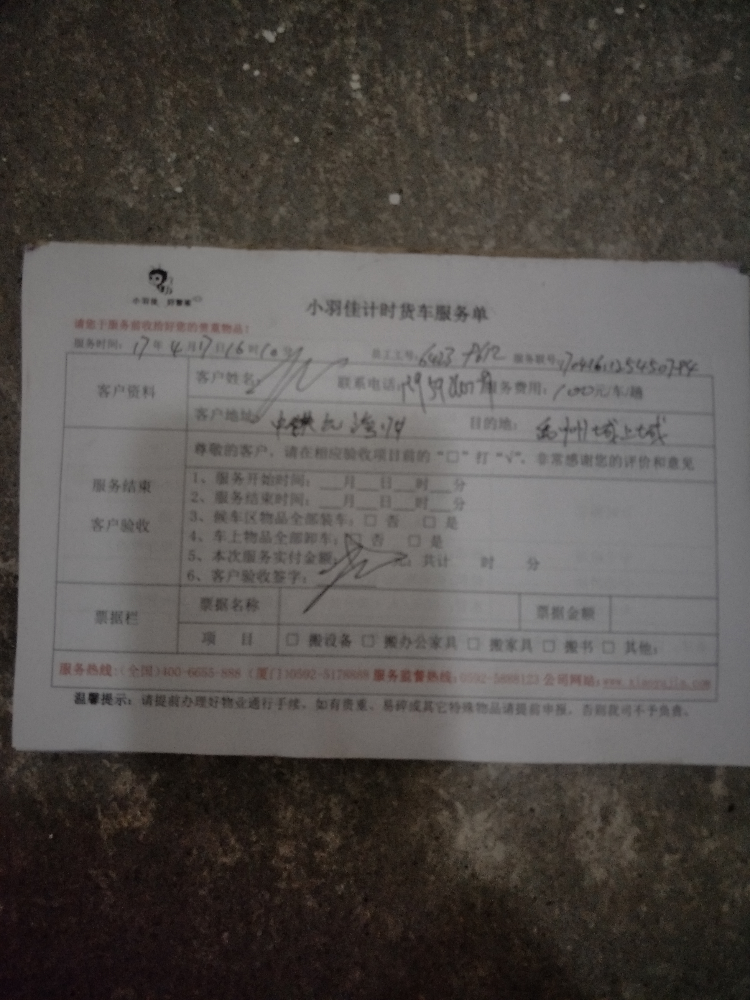 小羽佳 好管家
小羽佳计时货车服务单
请您于服务前收拾好您的贵重物品！
服务时间：17年4月17日16时10分 员工工号：6423 服务联号：
客户资料 客户姓名： 联系电话： 服务费用：100元/车/趟
客户地址： 目的地：
尊敬的客户，请在相应验收项目前的“□”打“√”，非常感谢您的评价和意见
服务结束
客户验收
1、服务开始时间：___月___日___时___分
2、服务结束时间：___月___日___时___分
3、候车区物品全部装车：□ 否 □ 是
4、车上物品全部卸车：□ 否 □ 是
5、本次服务实付金额： 元；共计 时 分
6、客户验收签字：
票据栏 票据名称 票据金额
项 目 □ 搬设备 □ 搬办公家具 □ 搬家具 □ 搬书 □ 其他：
服务热线：（全国）400-6655-888（厦门）0592-5178888 服务监督热线：0592-5888123 公司网站：www.xiaoyujia.com
温馨提示：请提前办理好物业通行手续，如有贵重、易碎或其它特殊物品请提前申报，否则我司不予负责。